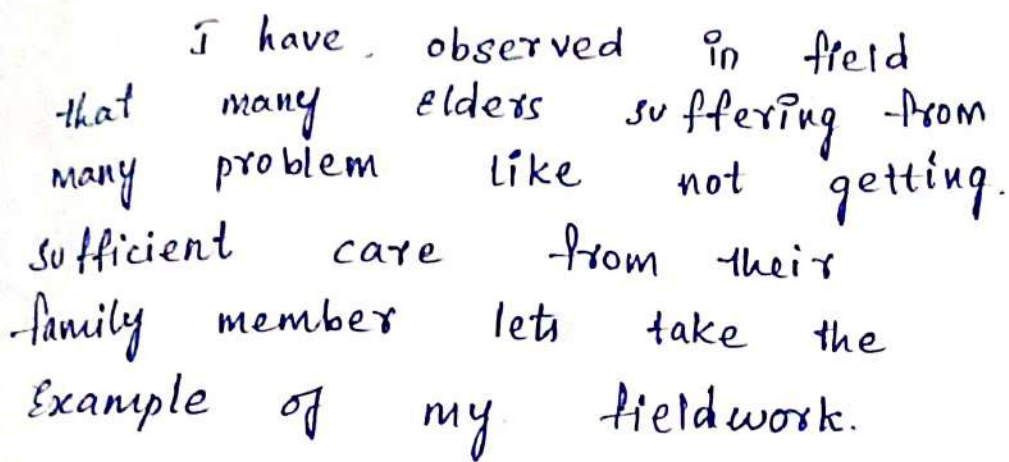 I have observed in field
that many elders suffering from
many problem like not getting.
sufficient care from their
family member lets take the
Example of my fieldwork.